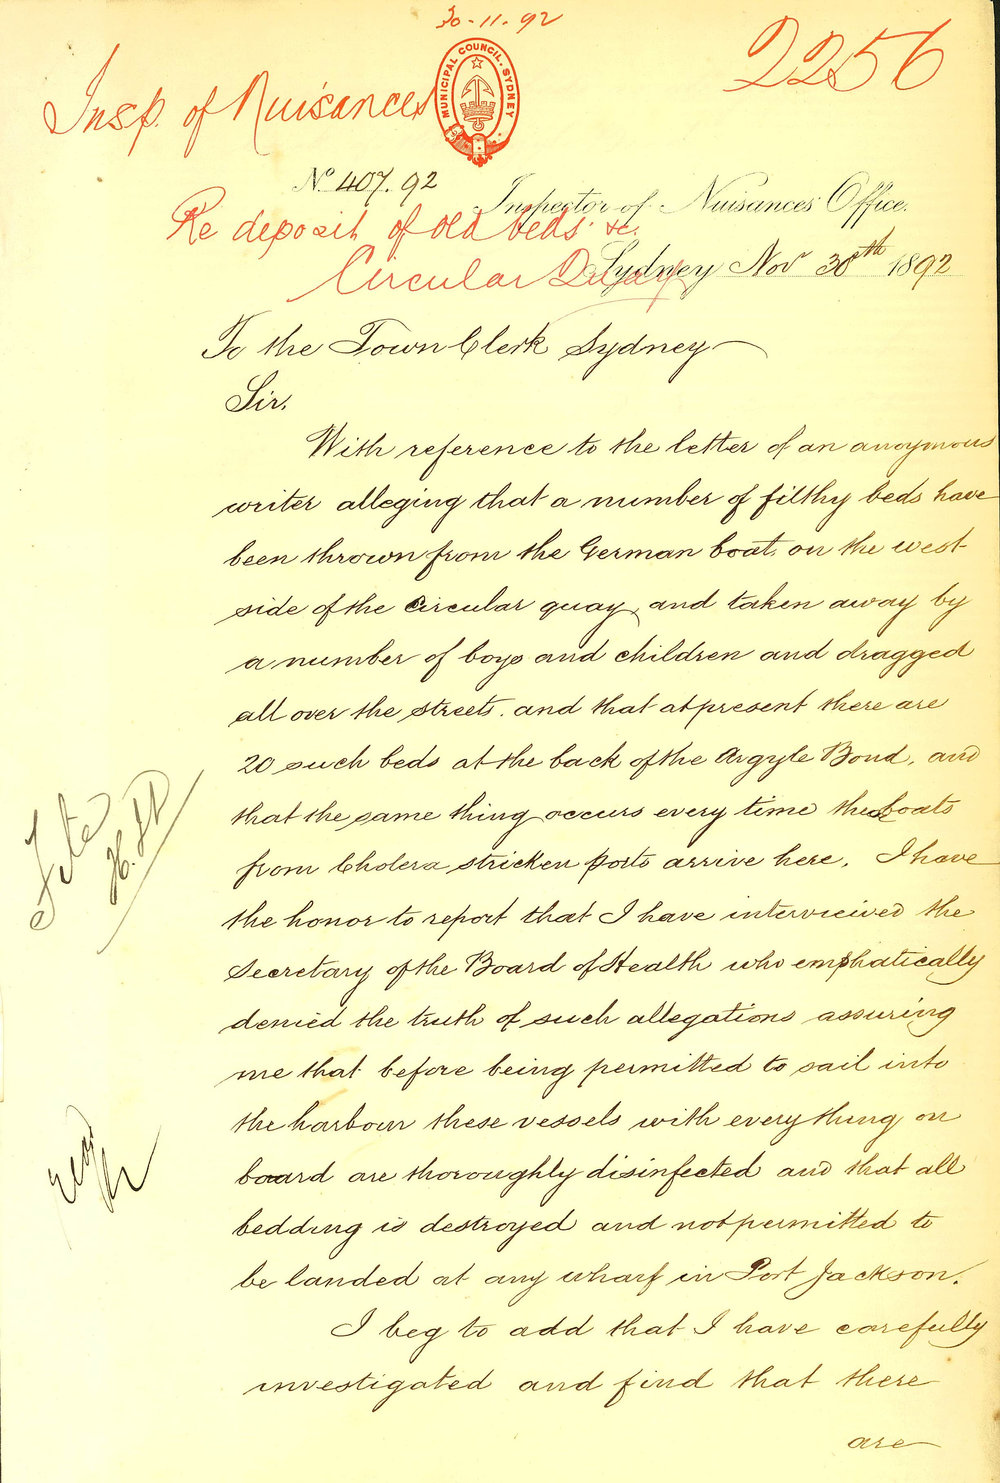 30-11-92
2256
MUNICIPAL COUNCIL. SYDNEY
Insp. of Nuisances
No 407.92
Inspector of Nuisances' Office.
Re deposit of old beds &c.
Circular Quay
Sydney Nov 30th 1892
To the Town Clerk Sydney
Sir.
With reference to the letter of an anoymous
writer alleging that a number of filthy beds have
been thrown from the German boat, on the west
side of the Circular quay, and taken away by
a number of boys and children and dragged
all over the streets. and that at present there are
20 such beds at the back of the Argyle Bond, and
that the same thing occurs every time the boats
from Cholera stricken ports arrive here. I have
the honor to report that I have interveiwed the
Secretary of the Board of Health who emphatically
denied the truth of such allegations assuring
me that before being permitted to sail into
the harbour these vessels with every thing on
board are thoroughly disinfected and that all
bedding is destroyed and not permitted to
be landed at any wharf in Port Jackson.
I beg to add that I have carefully
investigated and find that there
are
File